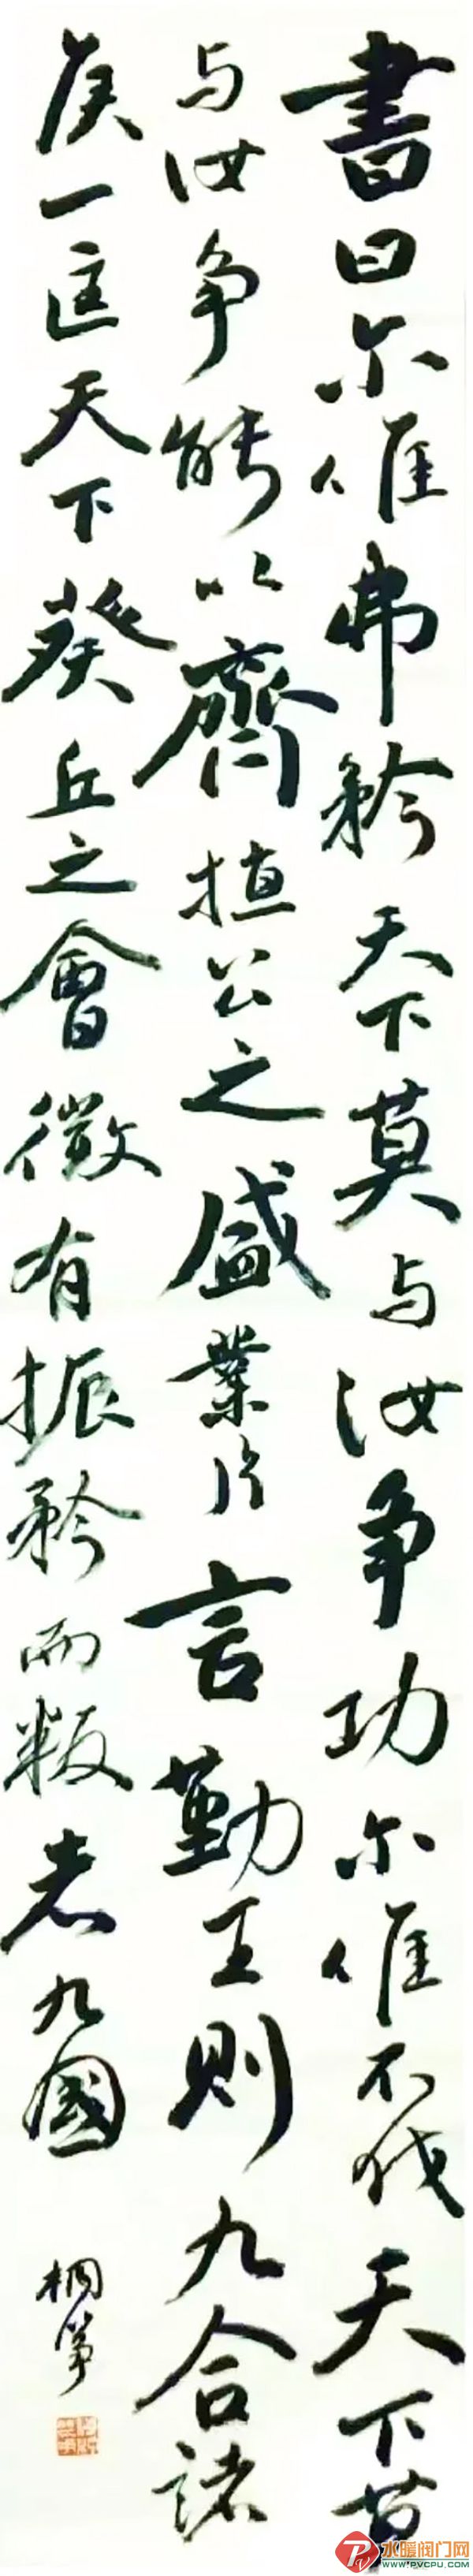 書曰尔惟弗矜天下莫与汝争功尔惟不伐天下莫
与汝争能以齊桓公之盛業片言勤王则九合諸
侯一匡天下葵丘之會微有振矜而叛者九國
桐筝
水暖阀门网
WWW.PVCPU.COM